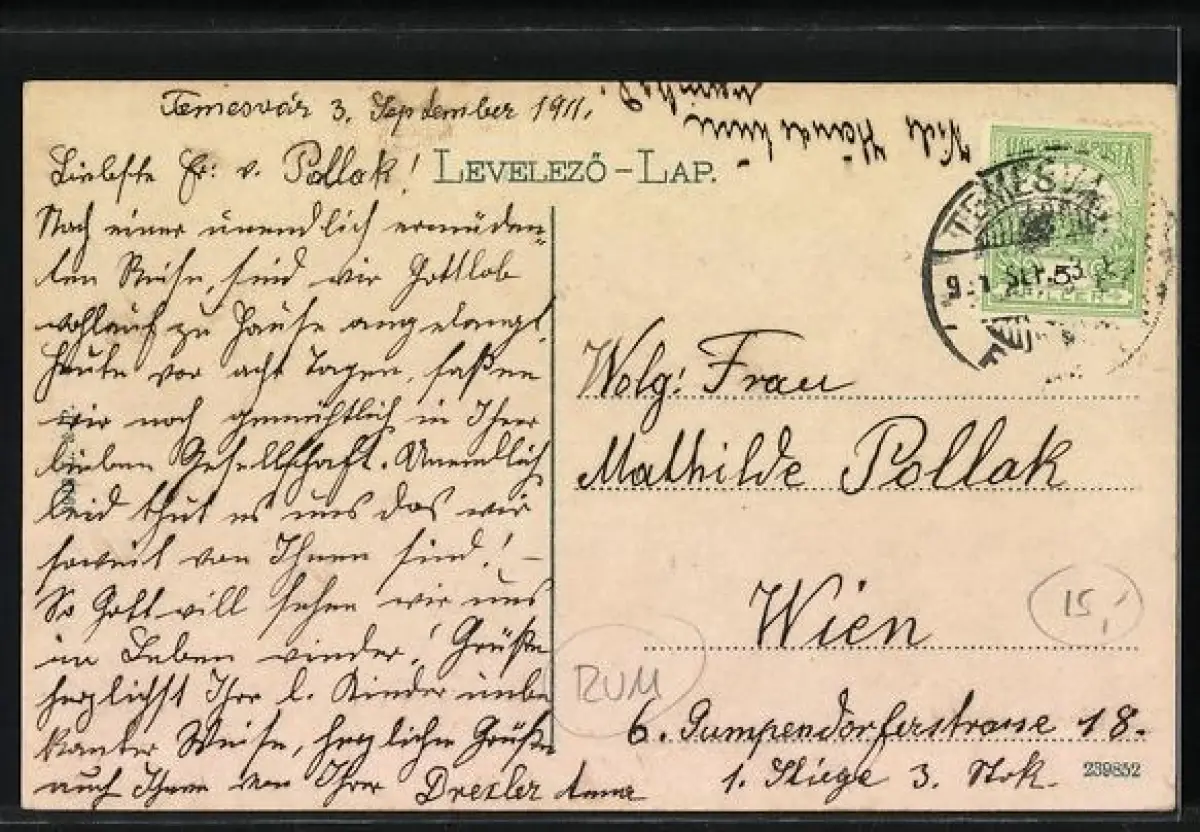 Temesvár 3. September 1911.
Liebste Fr: v. Pollak!
LEVELEZŐ-LAP.
Nach einer unendlich ermüden-
ten Reise, sind wir Gottlob
wohlauf zu Hause angelangt,
Heute vor acht Tagen, saßen
wir noch gemühtlich in Ihrer
lieben Gesellschaft. Unendlich
leid thut es uns das wir
soweit von Ihnen sind! -
So Gott will sehen wir uns
im Leben wieder! Grüße
herzlichst Ihre l. Kinder unbe
kanter Weise, herzliche Grüße
auch Ihnen von Ihrer Drexler Anna
Viele
TEMESVÁR
Wolg: Frau
Mathilde Pollak
Wien
6. Gumpendorferstrasse 18.
1. Stiege 3. Stok.
15,
RUM
239852